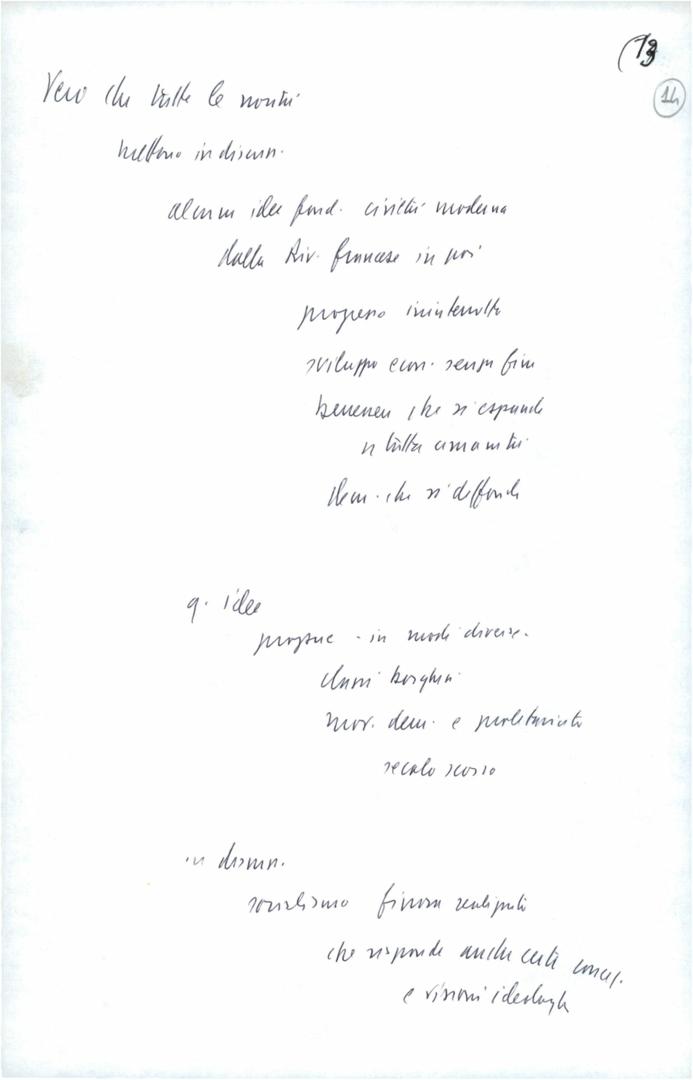 (13
14
Vero che tutte le novità
mettono in discuss.
alcune idee fond. civiltà moderna
dalla Riv. francese in poi
progresso ininterrotto
sviluppo econ. senza fine
benessere che si espande
a tutta umanità
dem. che si diffonde
q. idee
proprie - in modi diversi -
classi borghesi
mov. dem. e proletariato
secolo scorso
in discuss.
socialismo finora realizzato
che risponde anche certe concez.
e visioni ideologh